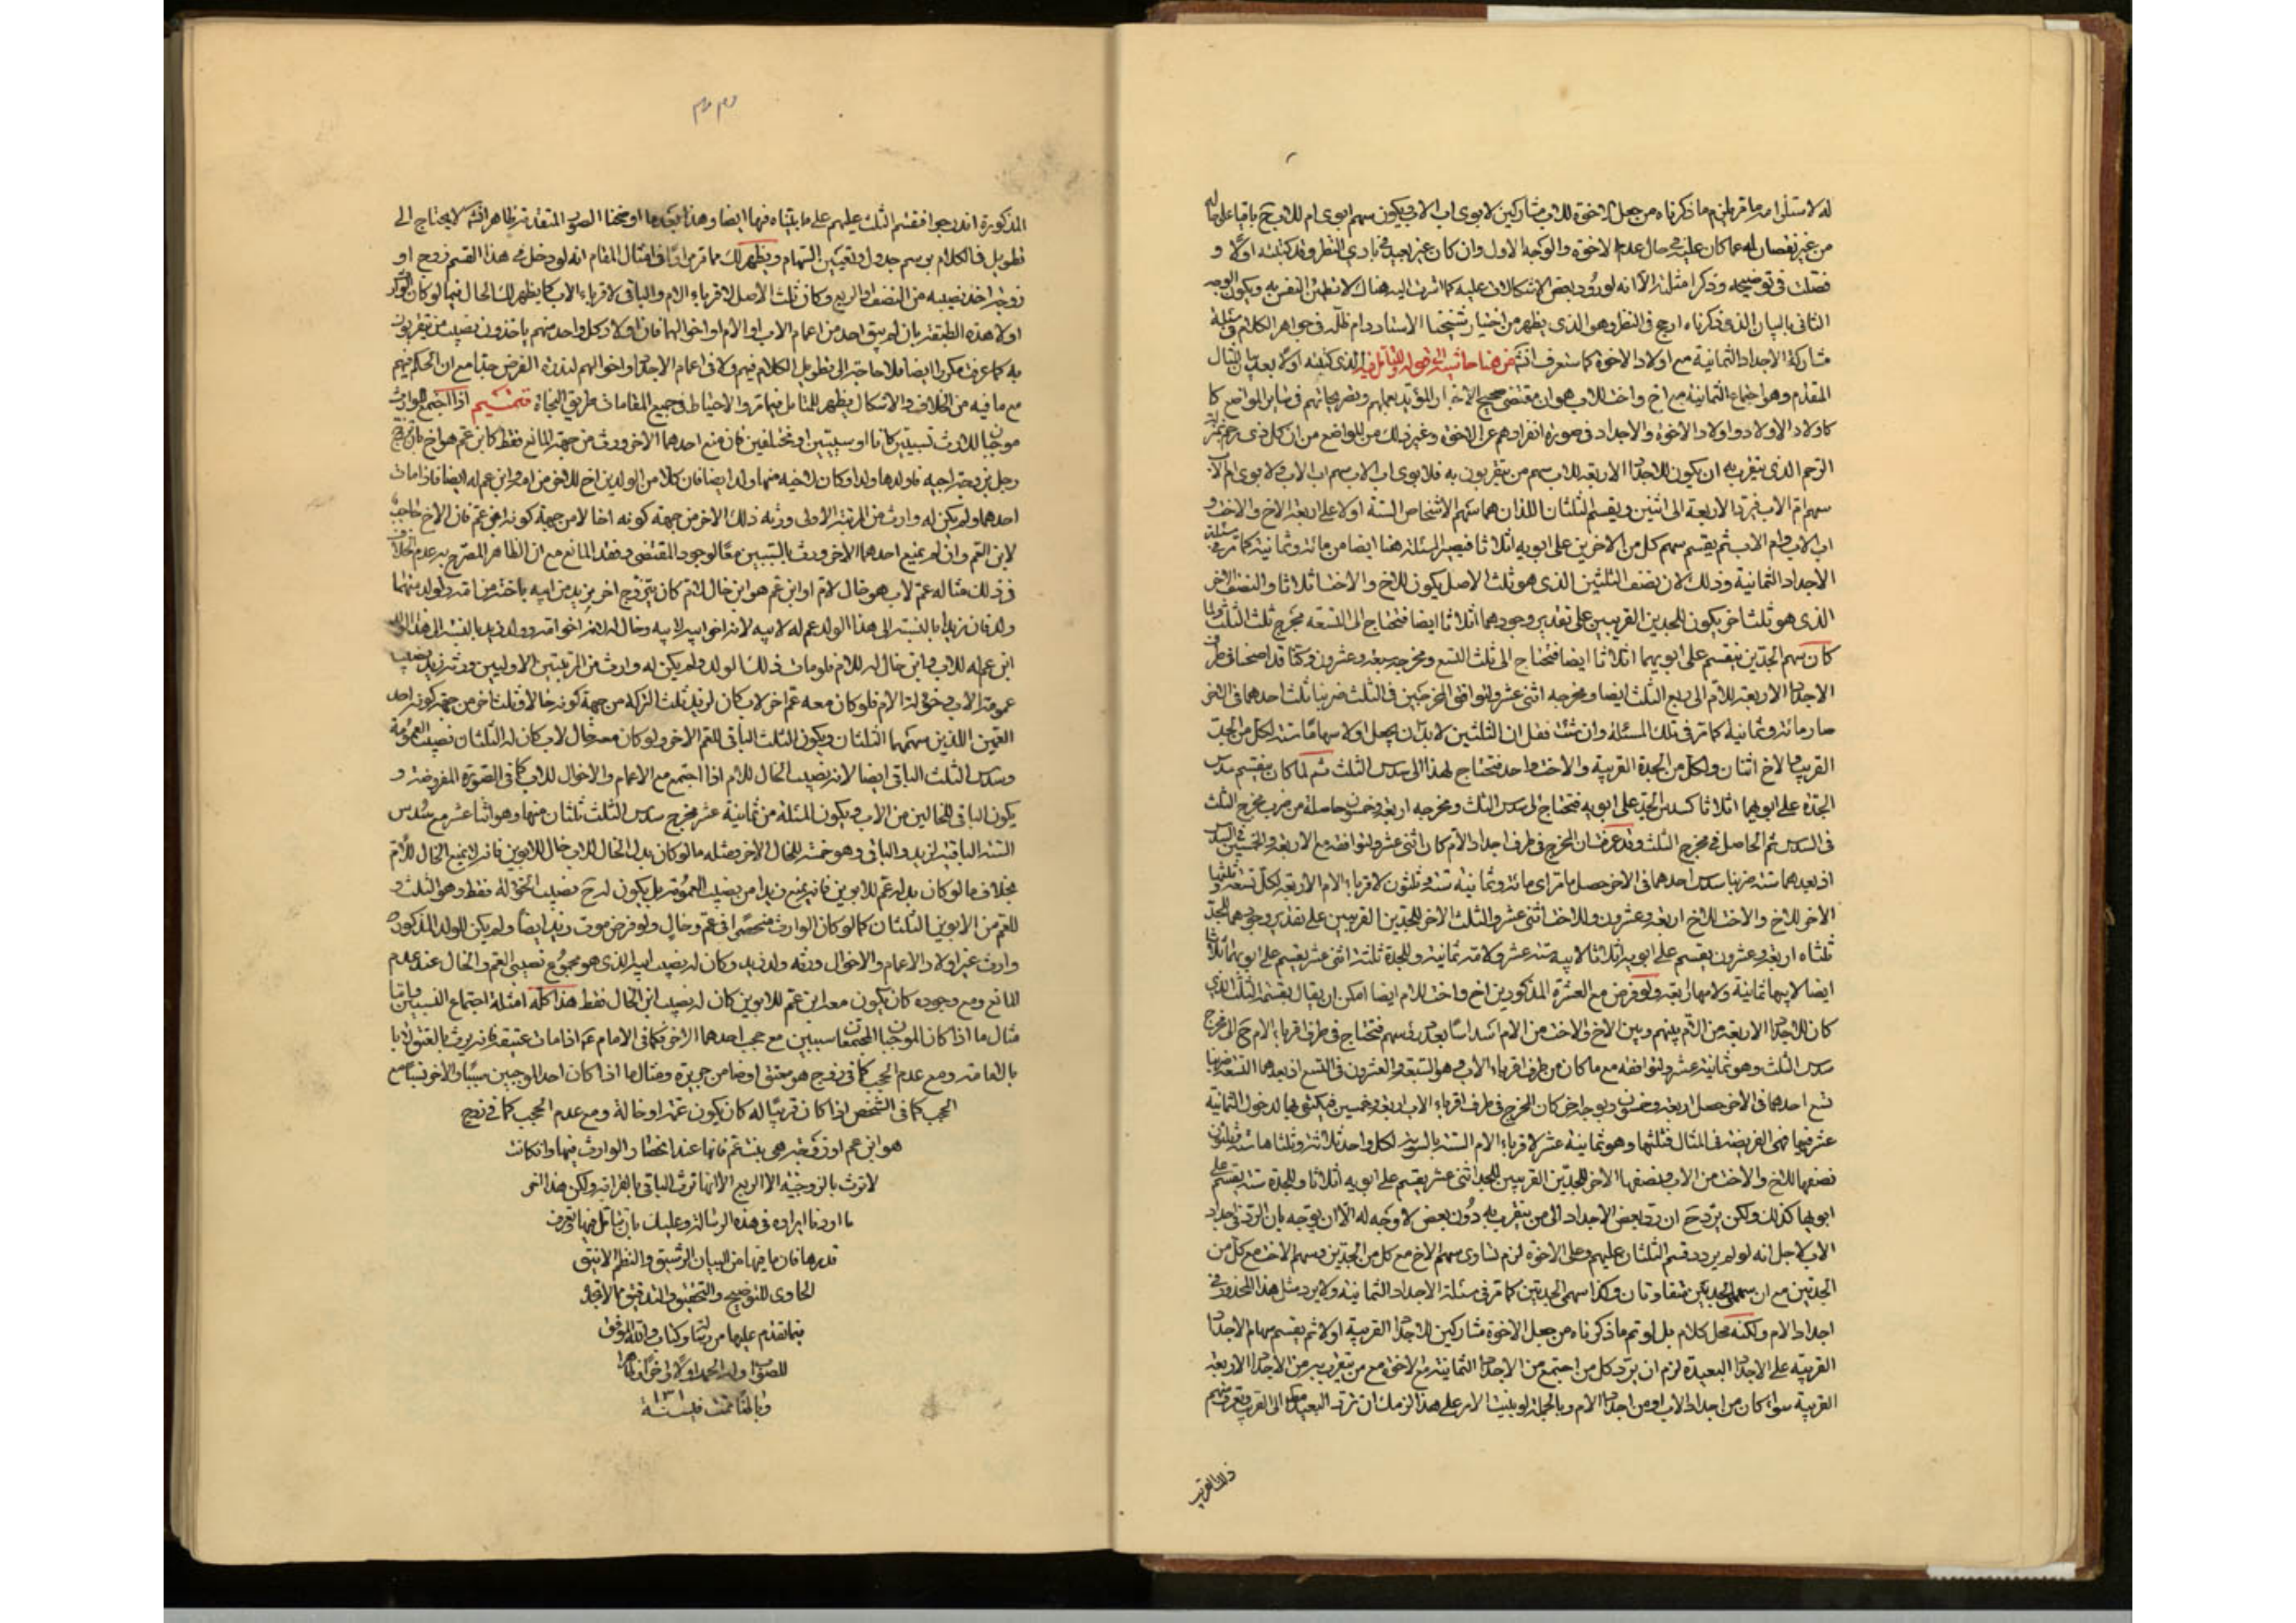 له لاستلزامه ما مر يلزم ما ذكرناه من جعل الاخوة للاب مشاركين لابوى اب الاب ويكون سهم ابوى ام للاب ح باقيا على حاله
من غير نقصان له عما كان عليه فى حال عدم الاخوة والوجه الاول وان كان غير بعيد فى بادى النظر وقد كتبته اولا و
فصلت فى توضيحه وذكر امثلته الا انه لورود بعض الاشكالات عليه كما اشرت اليه هناك لا تطمئن النفس به ويكون الوجه
الثانى بالبيان الذى ذكرناه ارجح فى النظر وهو الذى يظهر من اختيار شيخنا الاستاد دام ظله فى جواهر الكلام فى مسئلة
مشاركة الاجداد الثمانية مع اولاد الاخوة كما ستعرف انش من هنا حاشية الى قوله للتامل فيه الذى كتبته اولا بعد بيان المثال
المقدم وهو اجتماع الثمانية مع اخ واخت للاب هو ان مقتضى صحيح الاخبار المؤيد بعملهم وتصريحاتهم فى ساير المواضع كا
كاولاد الاولاد واولاد الاخوة والاجداد فى صورة انفرادهم عن الاخوة وغير ذلك من المواضع من ان كل ذى رحم بمنزلة
الرحم الذى يتقرب به ان يكون للاجداد الاربعة للاب سهم من يتقربون به فلابوى اب الاب سهم اب الاب ولابوى ام الاب
سهم ام الاب فيرد الاربعة الى اثنين ويقسم الثلثان اللذان هما سهم الاشخاص الستة اولا على اربعة الاخ والاخت و
اب الاب وام الاب ثم يقسم سهم كل من الاخرين على ابويه اثلاثا فيصير المسئلة هنا ايضا من مائة وثمانية كما مر فى مسئلة
الاجداد الثمانية وذلك لان نصف الثلثين الذى هو ثلث الاصل يكون للاخ والاخت اثلاثا والنصف الاخر
الذى هو ثلث اخر يكون للجدين القريبين على تقدير وجودهما اثلاثا ايضا فتحتاج الى التسعة مخرج ثلث الثلث ولما
كان سهم الجدين ينقسم على ابويهما اثلاثا ايضا فتحتاج الى ثلث التسع ومخرجه سبعة وعشرون وكنا قد اضحنا فى طرف
الاجداد الاربعة للام الى ربع الثلث ايضا ومخرجه اثنى عشر ولتوافق المخرجين فى الثلث ضربنا ثلث احدهما فى الاخر
صار مائة وثمانية كما مر فى تلك المسئلة وان شئت فقل ان الثلثين لابد ان يجعل اولا سهاما ستة لكل من الجد
القريب والاخ اثنان ولكل من الجدة القريبة والاخت واحد فتحتاج لهذا الى سدس الثلث ثم لما كان ينقسم سدس
الجدة على ابويها اثلاثا كسدس الجد على ابويه فتحتاج الى سدس الثلث ومخرجه اربعة وخمسون حاصلة من ضرب مخرج الثلث
فى السدس ثم الحاصل فى مخرج الثلث وقد عرفت ان المخرج فى طرف اجداد الام كان اثنى عشر ولتوافقه مع الاربعة والخمسين فى السدس
اذ بعدهما ستة ضربنا سدس احدهما فى الاخر حصل ما ترى مائة وثمانية ستة وثلثون لاقرباء الام الاربعة لكل تسعة وثلثها
الاخر للاخ والاخت للاخ اربعة وعشرون وللاخت اثنى عشر والثلث الاخر للجدين القريبين على تقدير وجودهما للجد
ثلثاه اربعة وعشرون يقسم على ابويه اثلاثا لابيه ستة عشر ولامه ثمانية وللجدة ثلثه اثنى عشر يقسم على ابويها اثلاثا
ايضا لابيها ثمانية ولامها اربعة ولو فرض مع العشرة المذكورين اخ واخت للام ايضا امكن ان يقال بقسمة الثلث الذى
كان للاجداد الاربعة من الام بينهم وبين الاخ والاخت من الام اسداسا بعدد رؤسهم فتحتاج فى طرف اقرباء الام ح الى مخرج
سدس الثلث وهو ثمانية عشر ولتوافقه مع ما كان من طرف اقرباء الاب وهو السبعة والعشرون فى التسع اذ بعدهما التسعة ضربنا
تسع احدهما فى الاخر حصل اربعة وخمسون وبوجه اخر كان المخرج فى طرف اقرباء الاب اربعة وخمسين فيكتفى بها لدخول الثمانية
عشر فيها فهى الفريضة فى المثال فثلثها وهو ثمانية عشر لاقرباء الام الستة بالسوية لكل واحد ثلاثة وثلثاها ستة وثلثون
نصفها للاخ والاخت من الاب ونصفها الاخر للجدين القريبين للجد اثنى عشر يقسم على ابويه اثلاثا وللجدة ستة يقسم على
ابويها كذلك ولكن يرد ح ان رد بعض الاجداد الى من يتقرب به دون بعض لا وجه له الا ان يوجه بان الرد فى اجداد
الاب لاجل انه لو لم يردد قسم الثلثان عليهم وعلى الاخوة لزم تساوى سهم الاخ مع كل من الجدين وسهم الاخت مع كل من
الجدتين مع ان سهمى الجدين متفاوتان وكذا سهمى الجدتين كما مر فى مسئلة الاجداد الثمانية ولا يرد مثل هذا المحذور فى
اجداد الام ولكنه محل كلام بل لو تم ما ذكرناه من جعل الاخوة مشاركين للاجداد القريبة اولا ثم يقسم سهام الاجداد
القريبة على الاجداد البعيدة لزم ان يرد كل من اجتمع من الاجداد الثمانية مع الاخوة مع من يتقرب به من الاجداد الاربعة
القريبة سواء كان من اجداد الاب او من اجداد الام وبالجملة لو بنيت الامر على هذا الزمك ان ترد البعيد الى القريب وتعرف سهم
ذلك القريب
المذكورة اندرجوا فقسم الثلث عليهم على ما بيناه فيها ايضا وهذا بعد ما اوضحنا الصور المتقدمة ظاهر انش لا يحتاج الى
تطويل فى الكلام برسم جدول وتعيين السهام ويظهر لك مما مر مرارا فى امثال المقام انه لو دخل فى هذا القسم زوج او
زوجة اخذ نصيبه من النصف او الربع وكان ثلث الاصل لاقرباء الام والباقى لاقرباء الاب كما يظهر لك الحال فيما لو كان الوارث
اولاد هذه الطبقة بان لم يبق احد من اعمام الاب او الام او اخوالهما فان اولاد كل واحد منهم ياخذون نصيب من يتقربون
به كما عرفت مكررا ايضا فلا حاجة الى تطويل الكلام فيهم ولا فى اعمام الاجداد واخوالهم لندرة الفرض جدا مع ان الحكم فيهم
مع ما فيه من الخلاف والاشكال يظهر للمتامل فيما مر والاحتياط فى جميع المقامات طريق النجاة تتميم اذا اجتمع للوارث
موجبان للارث نسبيين كانا او سببيين او مختلفين فان منع احدهما الاخر ورث من جهة المانع فقط كابن عم هو اخ بان تزوج
رجل بزوجة اخيه فاولدها ولدا وكان لاخيه منها ولد ايضا فان كلا من الولدين اخ للاخر من امه وابن عم له ايضا فاذا مات
احدهما ولم يكن له وارث من المرتبة الاولى ورثه ذلك الاخر من جهة كونه اخا لا من جهة كونه ابن عم فان الاخ حاجب
لابن العم وان لم يمنع احدهما الاخر ورث بالسببين معا لوجود المقتضى وفقد المانع مع ان الظاهر المصرح به عدم الخلاف
فى ذلك مثاله عم لاب هو خال لام او ابن عم هو ابن خال لام كان يتزوج اخو زيد من ابيه باخته من امه ولولد منهما
ولد فان زيدا بالنسبة الى هذا الولد عم له لابيه لانه اخو ابيه لابيه وخال له لانه اخو امه وولد زيد بالنسبة الى هذا الولد
ابن عم له للاب وابن خال له للام فلو مات ذلك الولد ولم يكن له وارث من المرتبتين الاوليين ورثه زيد بنصيب
عمومة الاب وخؤلة الام فلو كان معه عم اخر لاب كان لزيد ثلث التركة من جهة كونه خالا وثلث اخر من جهة كونه احد
العمين اللذين سهمهما الثلثان ويكون الثلث الباقى للعم الاخر ولو كان معه خال لاب كان له الثلثان نصيب العمومة
وسدس الثلث الباقى ايضا لانه نصيب الخال للام اذا اجتمع مع الاعمام والاخوال للاب كما فى الصورة المفروضة و
يكون الباقى للخال من الاب ويكون المسئلة من ثمانية عشر مخرج سدس الثلث ثلثان منها وهو اثنا عشر مع سدس
الستة الباقية لزيد والباقى وهو خمسة للخال الاخر ومثله ما لو كان بدل الخال للاب خال للابوين فانه لا يمنع الخال للام
بخلاف ما لو كان بدله عم للابوين فانه يمنع زيدا من نصيب العمومة بل يكون له ح نصيب الخؤلة فقط وهو الثلث و
للعم من الابوين الثلثان كما لو كان الوارث منحصرا فى عم وخال ولو فرض موت زيد ايضا ولم يكن للولد المذكور
وارث غير اولاد الاعمام والاخوال ورثه ولد زيد وكان له نصيب ابيه الذى هو مجموع نصيبى العم والخال عند عدم
المانع ومع وجوده كان يكون معه ابن عم للابوين كان له نصيب ابن الخال فقط هذا كله امثلة اجتماع النسبيين واما
مثال ما اذا كان الموجبان المجتمعان سببيين مع حجب احدهما الاخر فكما فى الامام ع اذا مات عتيقه فانه يرث بالعتق لا
بالامامة ومع عدم الحجب كما فى زوج هو معتق او ضامن جريرة ومثال ما اذا كان احد الموجبين سببا والاخر نسبا مع
الحجب كما فى الشخص اذا كان قريبا له كان يكون عمه او خاله ومع عدم الحجب كما فى زوج
هو ابن عم او زوجة هى بنت عم فانها عند انحصار الوارث فيها وان كانت
لا ترث بالزوجية الا الربع الا انها ترث الباقى بالقرابة وليكن هذا اخر
ما اردنا ايراده فى هذه الرسالة وعليك بان تتامل فيها وتعرف
قدرها فان ما فيها من البيان الرشيق والنظم الانيق
الحاوى للتوضيح والتحقيق والتدقيق ما لا تجد
فيما تقدم عليها من رسالة وكتاب والله الموفق
للصواب وله الحمد اولا واخرا وظاهرا
وباطنا تمت فى سنة